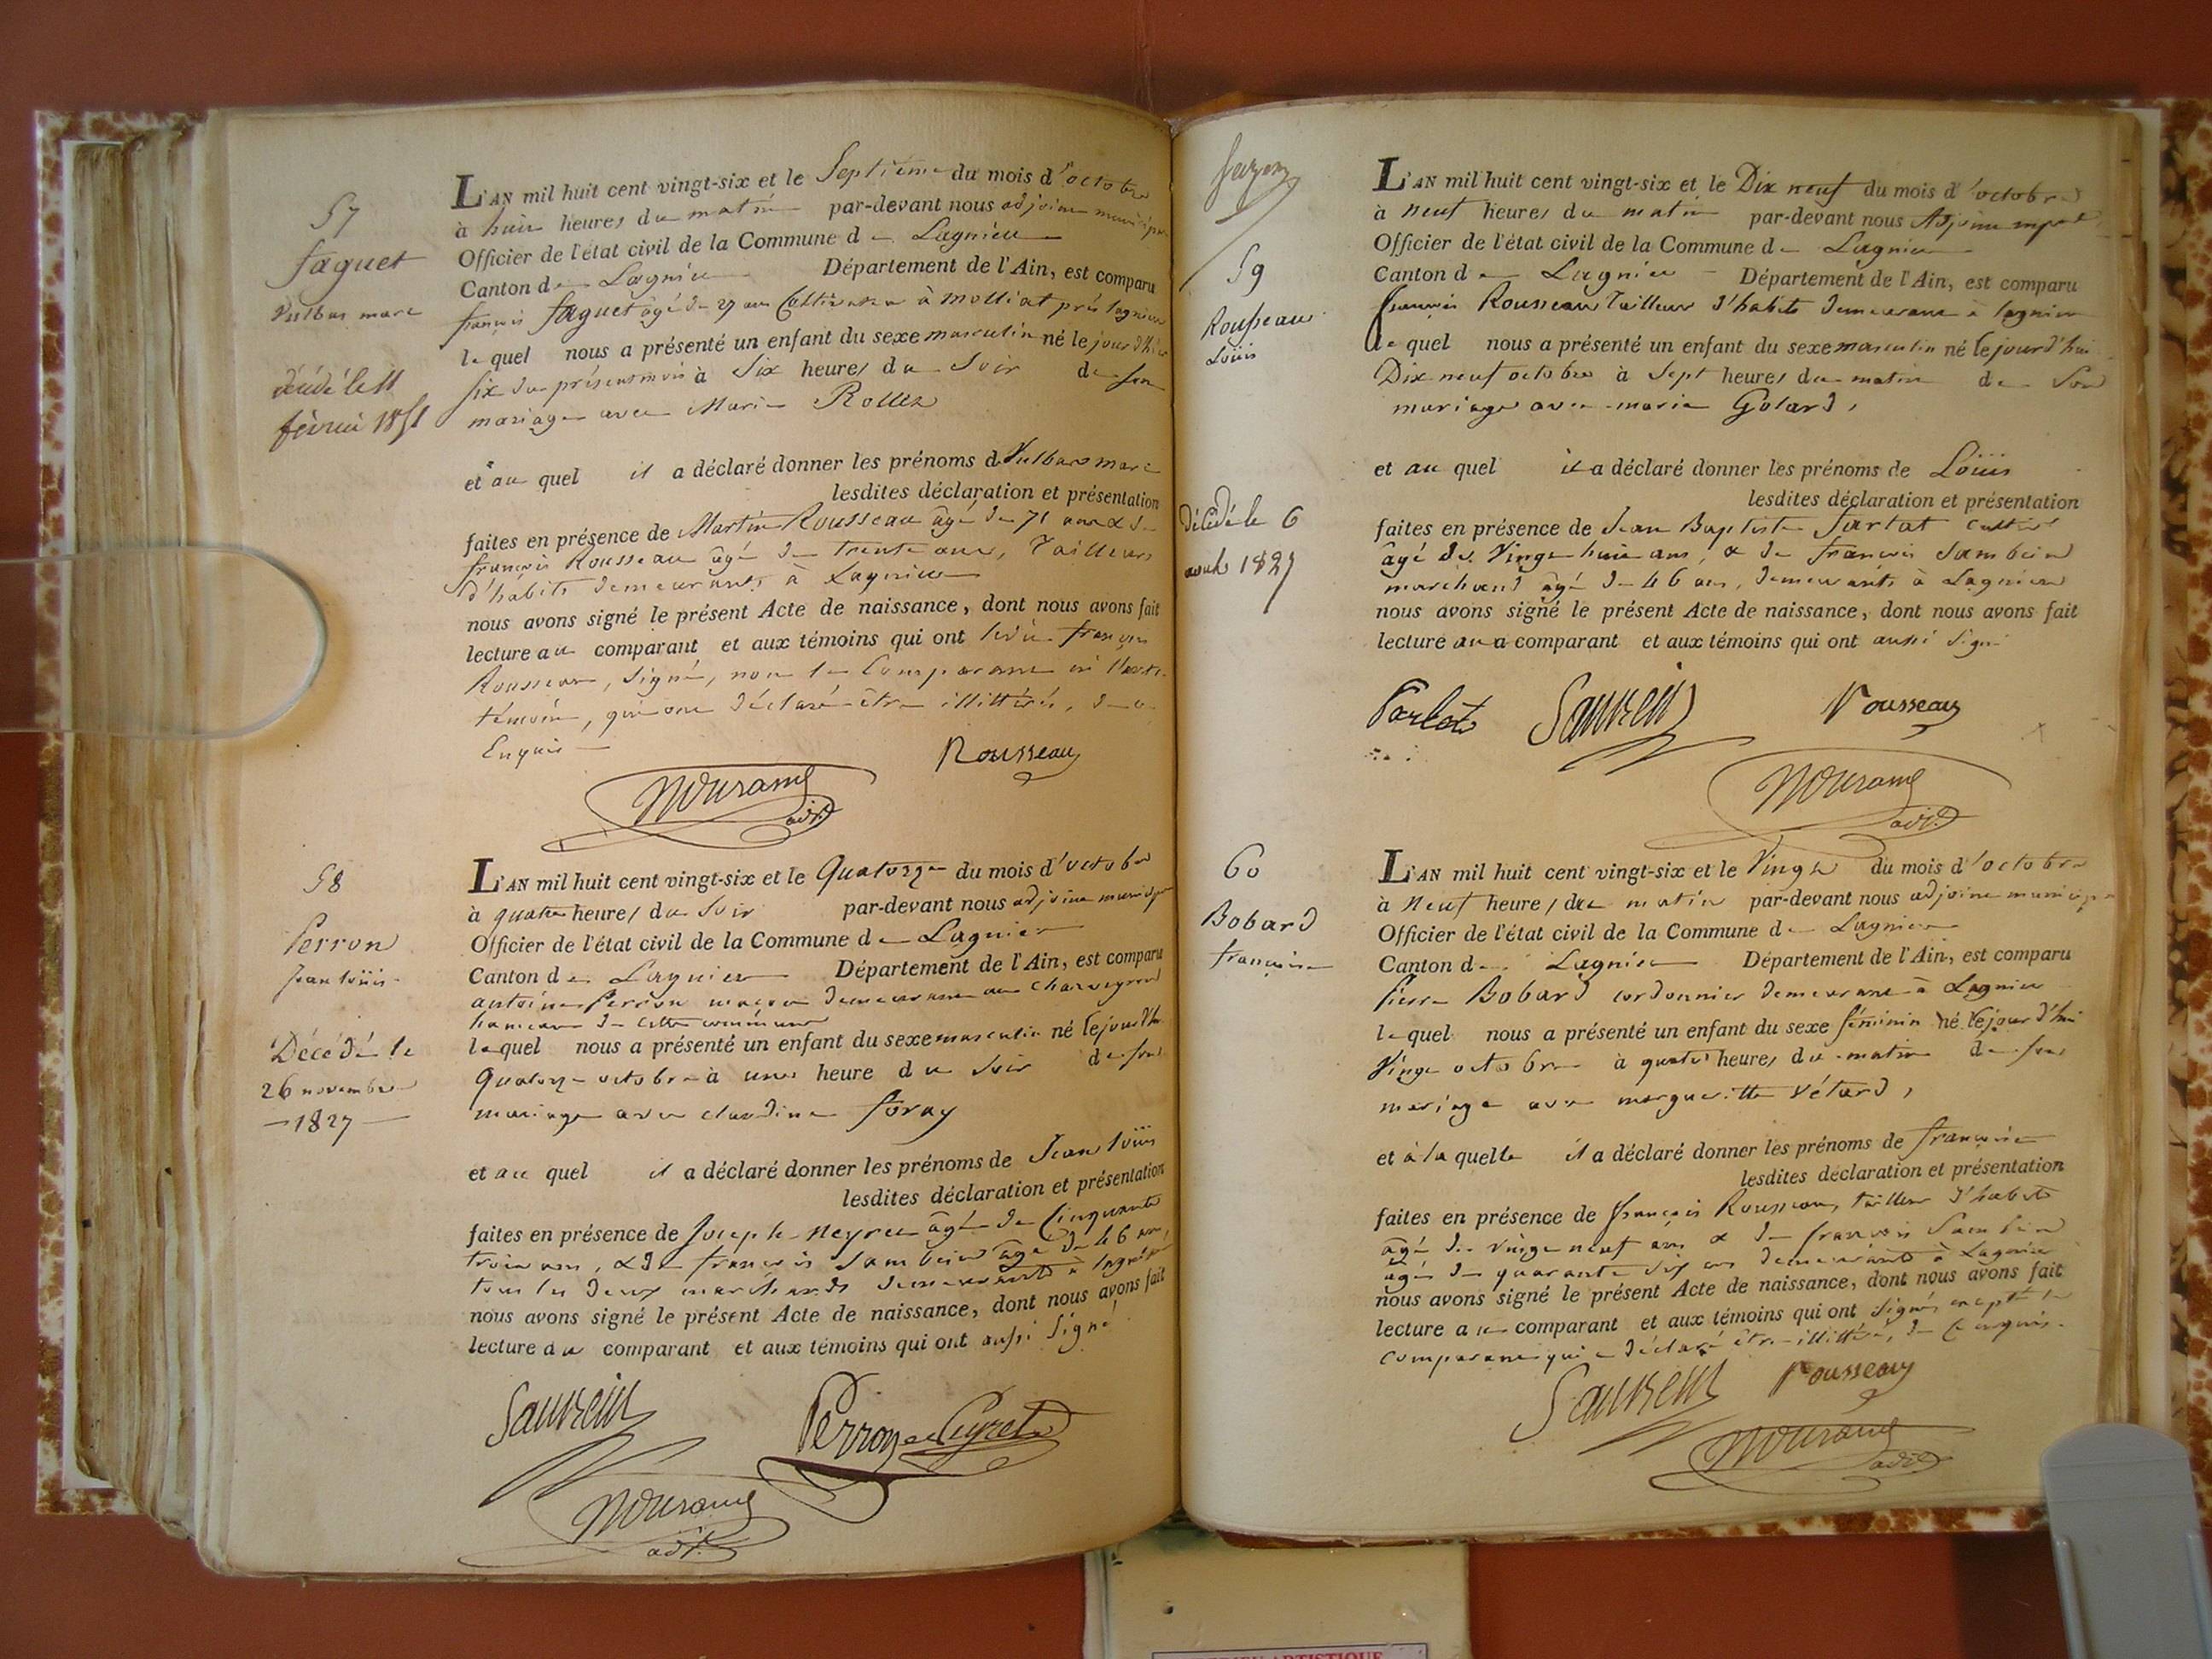 57
faguet
Vulbas marc
décédé le 11
février 1851
L'AN mil huit cent vingt-six et le Septième du mois d'octobre
à huit heures du matin par-devant nous adjoint
Officier de l'état civil de la Commune de Lagnieu
Canton de Lagnieu Département de l'Ain, est comparu
françois faguet âgé de 27 ans Cultivateur à Molliat près lagnieu
lequel nous a présenté un enfant du sexe masculin né le jour d'hier
six du présent mois à Six heures du Soir de son
mariage avec Marie Rollet
et au quel il a déclaré donner les prénoms de Vulbas marc
lesdites déclaration et présentation
faites en présence de Martin Rousseau âgé de 71 ans & de
françois Rousseau âgé de trente ans, Tailleurs
d'habits demeurants à Lagnieu
nous avons signé le présent Acte de naissance, dont nous avons fait
lecture au comparant et aux témoins qui ont françois
Rousseau, Signé, non le Comparant
témoin, qui ont déclaré être illittérés, de ce
Enquis
Rousseau
adjt
58
Perron
jean loüis
Décédé le
26 novembre
1827
L'AN mil huit cent vingt-six et le Quatorze du mois d'octobre
à quatre heures du Soir par-devant nous adjoint
Officier de l'état civil de la Commune de Lagnieu
Canton de Lagnieu Département de l'Ain, est comparu
antoine Perron maçon demeurant au
hameau de cette commune
lequel nous a présenté un enfant du sexe masculin né le jourd'hui
Quatorze octobre à une heure du Soir de son
mariage avec claudine foray
et au quel il a déclaré donner les prénoms de Jean loüis
lesdites déclaration et présentation
faites en présence de Joseph âgé de Cinquante
trois ans, & de françois âgé de 46 ans,
tous les deux marchands demeurants à lagnieu
nous avons signé le présent Acte de naissance, dont nous avons fait
lecture au comparant et aux témoins qui ont aussi Signé
Perron
adjt
59
Rousseau
Loüis
décédé le 6
août 1827
L'AN mil huit cent vingt-six et le Dix neuf du mois d'octobre
à neuf heures du matin par-devant nous Adjoint
Officier de l'état civil de la Commune de Lagnieu
Canton de Lagnieu Département de l'Ain, est comparu
françois Rousseau Tailleur d'habits demeurant à lagnieu
lequel nous a présenté un enfant du sexe masculin né le jourd'hui
Dix neuf octobre à Sept heures du matin de Son
mariage avec marie Golard,
et au quel il a déclaré donner les prénoms de Loüis
lesdites déclaration et présentation
faites en présence de Jean Baptiste
âgé de Vingt huit ans, & de françois
marchand âgé de 46 ans, demeurants à Lagnieu
nous avons signé le présent Acte de naissance, dont nous avons fait
lecture au comparant et aux témoins qui ont aussi Signé
Rousseau
adjt
60
Bobard
françoise
L'AN mil huit cent vingt-six et le Vingt du mois d'octobre
à Neuf heures du matin par-devant nous adjoint
Officier de l'état civil de la Commune de Lagnieu
Canton de Lagnieu Département de l'Ain, est comparu
Pierre Bobard cordonnier demeurant à Lagnieu
lequel nous a présenté un enfant du sexe féminin né le jourd'hui
Vingt octobre à quatre heures du matin de son
mariage avec margueritte Vétard,
et à la quelle il a déclaré donner les prénoms de françoise
lesdites déclaration et présentation
faites en présence de françois Rousseau, tailleur d'habits
âgé de vingt neuf ans & de françois
âgé de quarante six ans demeurants à Lagnieu
nous avons signé le présent Acte de naissance, dont nous avons fait
lecture au comparant et aux témoins qui ont Signés excepté le
comparant qui a déclaré être illittéré, de ce enquis.
Rousseau
adjt